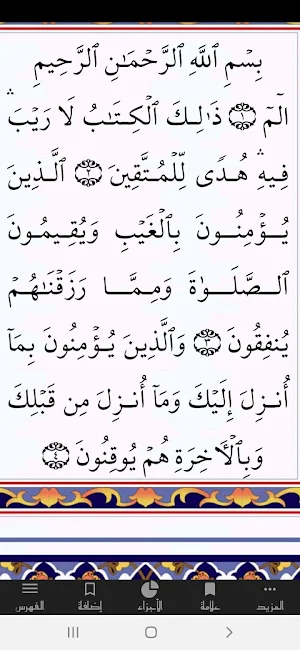 بِسْمِ ٱللَّهِ ٱلرَّحْمَـٰنِ ٱلرَّحِيمِ
الٓمٓ ١ ذَٰلِكَ ٱلْكِتَـٰبُ لَا رَيْبَ ۛ
فِيهِ ۛ هُدًى لِّلْمُتَّقِينَ ٢ ٱلَّذِينَ
يُؤْمِنُونَ بِٱلْغَيْبِ وَيُقِيمُونَ
ٱلصَّلَوٰةَ وَمِمَّا رَزَقْنَـٰهُمْ
يُنفِقُونَ ٣ وَٱلَّذِينَ يُؤْمِنُونَ بِمَآ
أُنزِلَ إِلَيْكَ وَمَآ أُنزِلَ مِن قَبْلِكَ
وَبِٱلْـَٔاخِرَةِ هُمْ يُوقِنُونَ ٤
المزيد علامة الأجزاء إضافة الفهرس